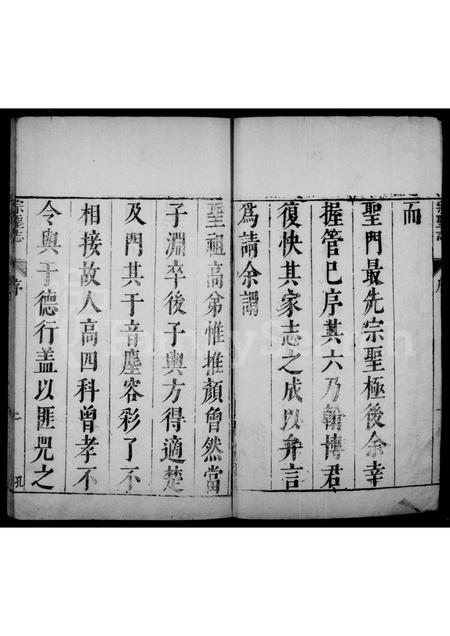 宗聖志
而
聖門最先宗聖極後余幸
握管已序其六乃翰博君
復快其家志之成以弁言
為請余謂
聖祖高弟惟推顏曾然當
子淵卒後子與方得適楚
及門其于音塵容彩了不
相接故人高四科曾孝不
令與于德行蓋以匪兕之
宗聖志
序
孔
FamilySearch